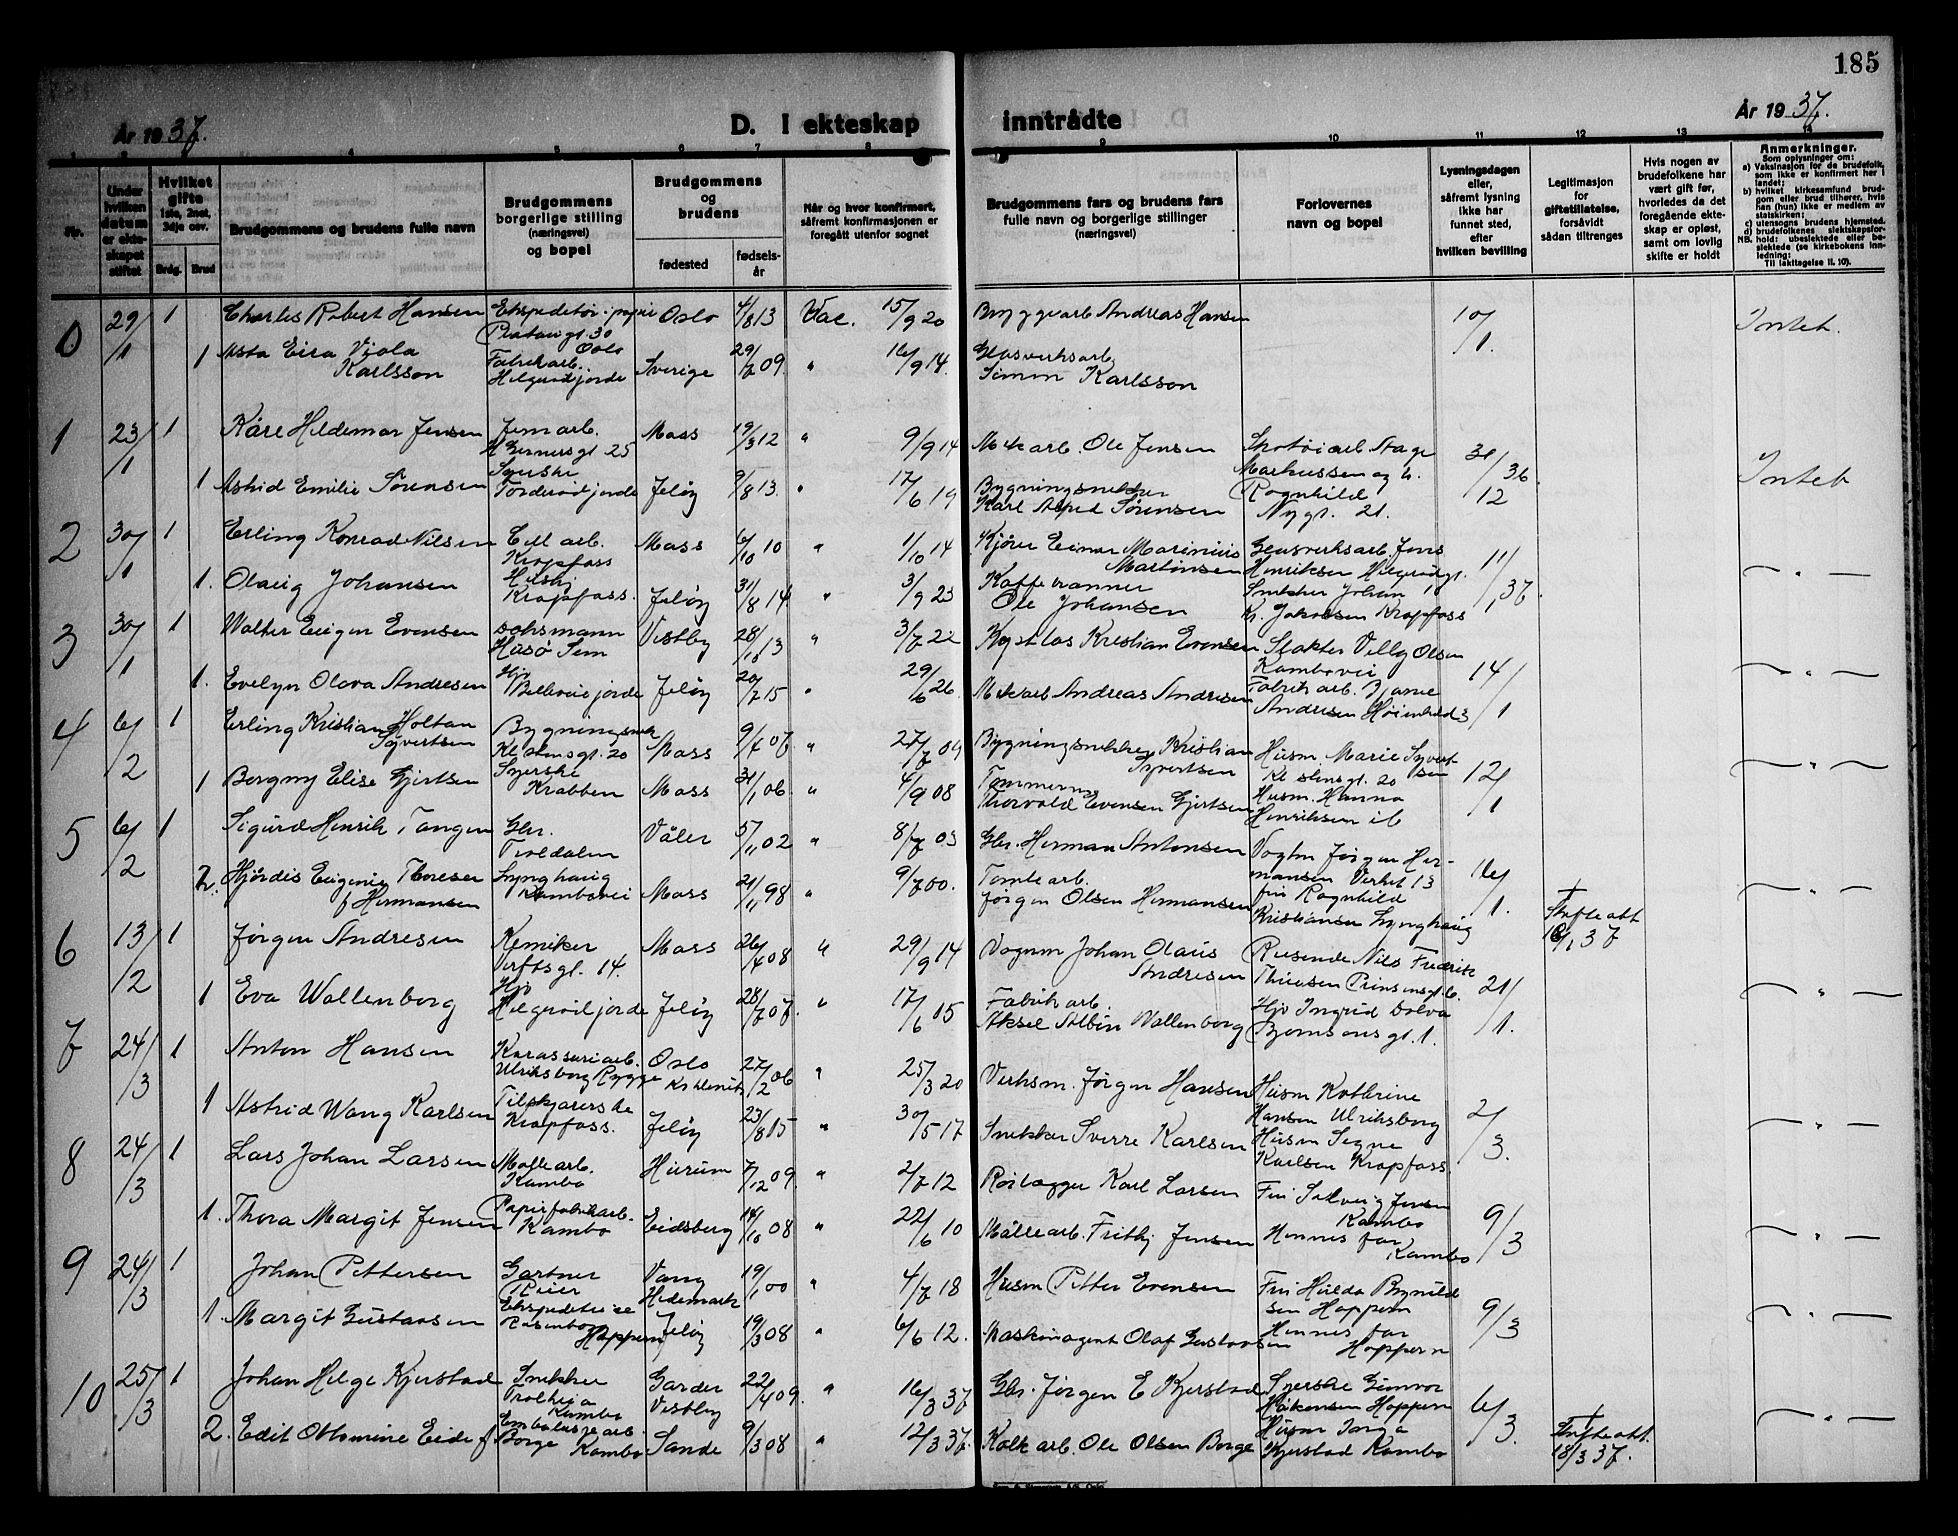 185
År 1937.
D. I ekteskap inntrådte
År 1937.
Nr.
Under hvilken datum er ekteskapet stiftet
Hvilket gifte 1ste, 2net, 3dje osv.
Brdg.
Brud
Brudgommens og brudens fulle navn
Brudgommens borgerlige stilling (næringsvei) og bopel
Brudgommens og brudens
fødested
fødselsår
Når og hvor konfirmert, såfremt konfirmasjonen er foregått utenfor sognet
Brudgommens fars og brudens fars fulle navn og borgerlige stillinger (næringsvei)
Forlovernes navn og bopel
Lysningsdagen eller, såfremt lysning ikke har funnet sted, efter hvilken bevilling
Legitimasjon for giftetillatelse, forsåvidt sådan tiltrenges
Hvis nogen av brudefolkene har vært gift før, hvorledes da det foregående ekteskap er opløst, samt om lovlig skifte er holdt
Anmerkninger.
Som oplysninger om:
a) Vaksinasjon for de brudefolk, som ikke er konfirmert her i landet;
b) hvilket kirkesamfund brudgom eller brud tilhører, hvis han (hun) ikke er medlem av statskirken;
c) utensogns brudens hjemsted.
d) brudefolkenes slektskapsforhold: ubeslektede eller beslektede (se kirkebokens innledning: Til iakttagelse II. 10).
NB.
0 29/1 1 Charles Robert Hansen Ekspeditør i papir Oslo 4/8 13 Vac. 15/9 20 Byggearb Andreas Hansen 10/1. Inteb.
Platougt. 30 Oslo
1 Asta Eira Viola Karlsson Fabrikarb. Helgerødjorde Sverige 29/7 09 " 16/9 14. Glasverksarb. Simon Karlsson
1 23/1 1 Kåre Hildemar Jensen Jernarb. Moss 19/3 12 " 9/9 14 Mek arb. Ole Jensen Skotøiarb Aage
H Gernersgt 25 Markussen og h. 31/12 36. Inteb
1 Astrid Emilie Sørensen Syerske Torderødjorde Jeløy 9/8 13. " 17/6 19 Bygningssnekker Karl Alfred Sørensen Ragnhild Nygt. 21.
2 30/1 1 Erling Konrad Nilsen Cell arb. Krapfoss Moss 6/10 10 " 1/10 14 Kjører Einar Marinius Martinsen Glasverksarb. Jens Henriksen Helgerødgt. 11/1 37
1. Olaug Johansen Hushj Krapfoss. Jeløy 31/8 14. " 3/9 23 Kaffebrenner Ole Johansen Snekker Johan Kr. Jakobsen Krapfoss
3 30/1 1 Walter Eugen Evensen Husø Sem Vestby 28/10 13 " 3/7 22 Kristian Evensen Slakter Villy Olsen Kambovei 14/1
1. Evelyn Olava Andresen Hjv Bellevuejorde Jeløy 20/2 15 " 29/6 26 Mek arb Andreas Andresen Fabrik arb. Bjarne Andresen
4 6/2 1 Erling Kristian Holtan Syvertsen Bygningssnek Kl stensgt. 20 Moss 9/7 07 " 27/7 09 Bygningssnekker Kristian Syvertsen Husm. Marie Syvertsen Kl stensgt. 20 12/1
1 Borgny Elise Gjertsen Syerske Krabben Moss 31/1 06 " 4/9 08 Tømmerm Thorvald Evensen Gjertsen Husm. Hanna Henriksen ib
5 6/2 1 Sigurd Henrik Tangen Gbr. Tirldalen Våler 5/11 02 " 8/7 03 Gbr. Herman Antonsen Vogtm Jørgen Hermansen Verket 13 16/1.
2. Hjørdis Eugenie Thoresen f Hermansen Lynghaug Kambovei Moss 21/11 98 " 9/7 00. Tomtearb. Jørgen Olsen Hermansen fru Ragnhild Kristiansen Lynghaug † Skifteatt 16/1 37
6 13/2 1 Jørgen Andresen Kemiker Verftsgt. 14. Moss 26/4 08 " 29/9 14 Vognm Johan Olaus Andresen Reisende Nils Fredrik Prinsensgt 6. 21/1.
1 Eva Wallenborg Hjv Helgerødjorde Jeløy 28/7 07. " 17/6 15 Fabrik arb. Aksel Albin Wallenborg Hjv Ingrid Dolva Bjørnsonsgt. 1.
7 24/3 1 Anton Hansen Karosseriarb. Ulriksborg Rygge Oslo 27/2 06 " 25/3 20 Verksm. Jørgen Hansen Husm Kathrine Hansen Ulriksborg 2/3.
1 Astrid Wang Karlsen Tilskjærerske Krapfoss. Jeløy 23/8 15 " 30/5 17 Snekker Sverre Karlsen Husm Signe Karlsen Krapfoss
8 24/3 1 Lars Johan Larsen Møllearb. Kambo Hurum 7/12 09. " 2/7 12 Rørlægger Karl Larsen Fru Solveig Jensen Kambo 9/3
1. Thora Margit Jensen Papirfabrikarb. Kambo Eidsberg 14/10 08 " 22/6 10 Møllearb. Frithj Jensen Hennes far Kambo
9 24/3 1 Johan Pettersen Gartner Reier Vang Hedemark 19/1 00 " 4/7 18 Husm Petter Evensen Fru Hulda Brynildsen Hoppern 9/3
1. Margit Gustavsen Ekspeditrise Rosenborg Hoppern Jeløy 19/3 08 " 6/6 12. Maskinagent Olaf Gustavsen Hennes far Hoppern
10 25/3 1 Johan Helge Kjerstad Snekker Trolheia Kambo Garder Vestby 22/4 09. " 16/3 37 Gbr. Jørgen E Kjerstad Syerske Gunvor Håkensen Hoppern 6/3.
2. Edit Othomine Eide f Borge Embalasjearb Kambo Sande 9/3 08 " 12/3 37. Kalk arb. Ole Olsen Borge Husm Inga Kjerstad Kambo † Skifteatt. 18/3 37.